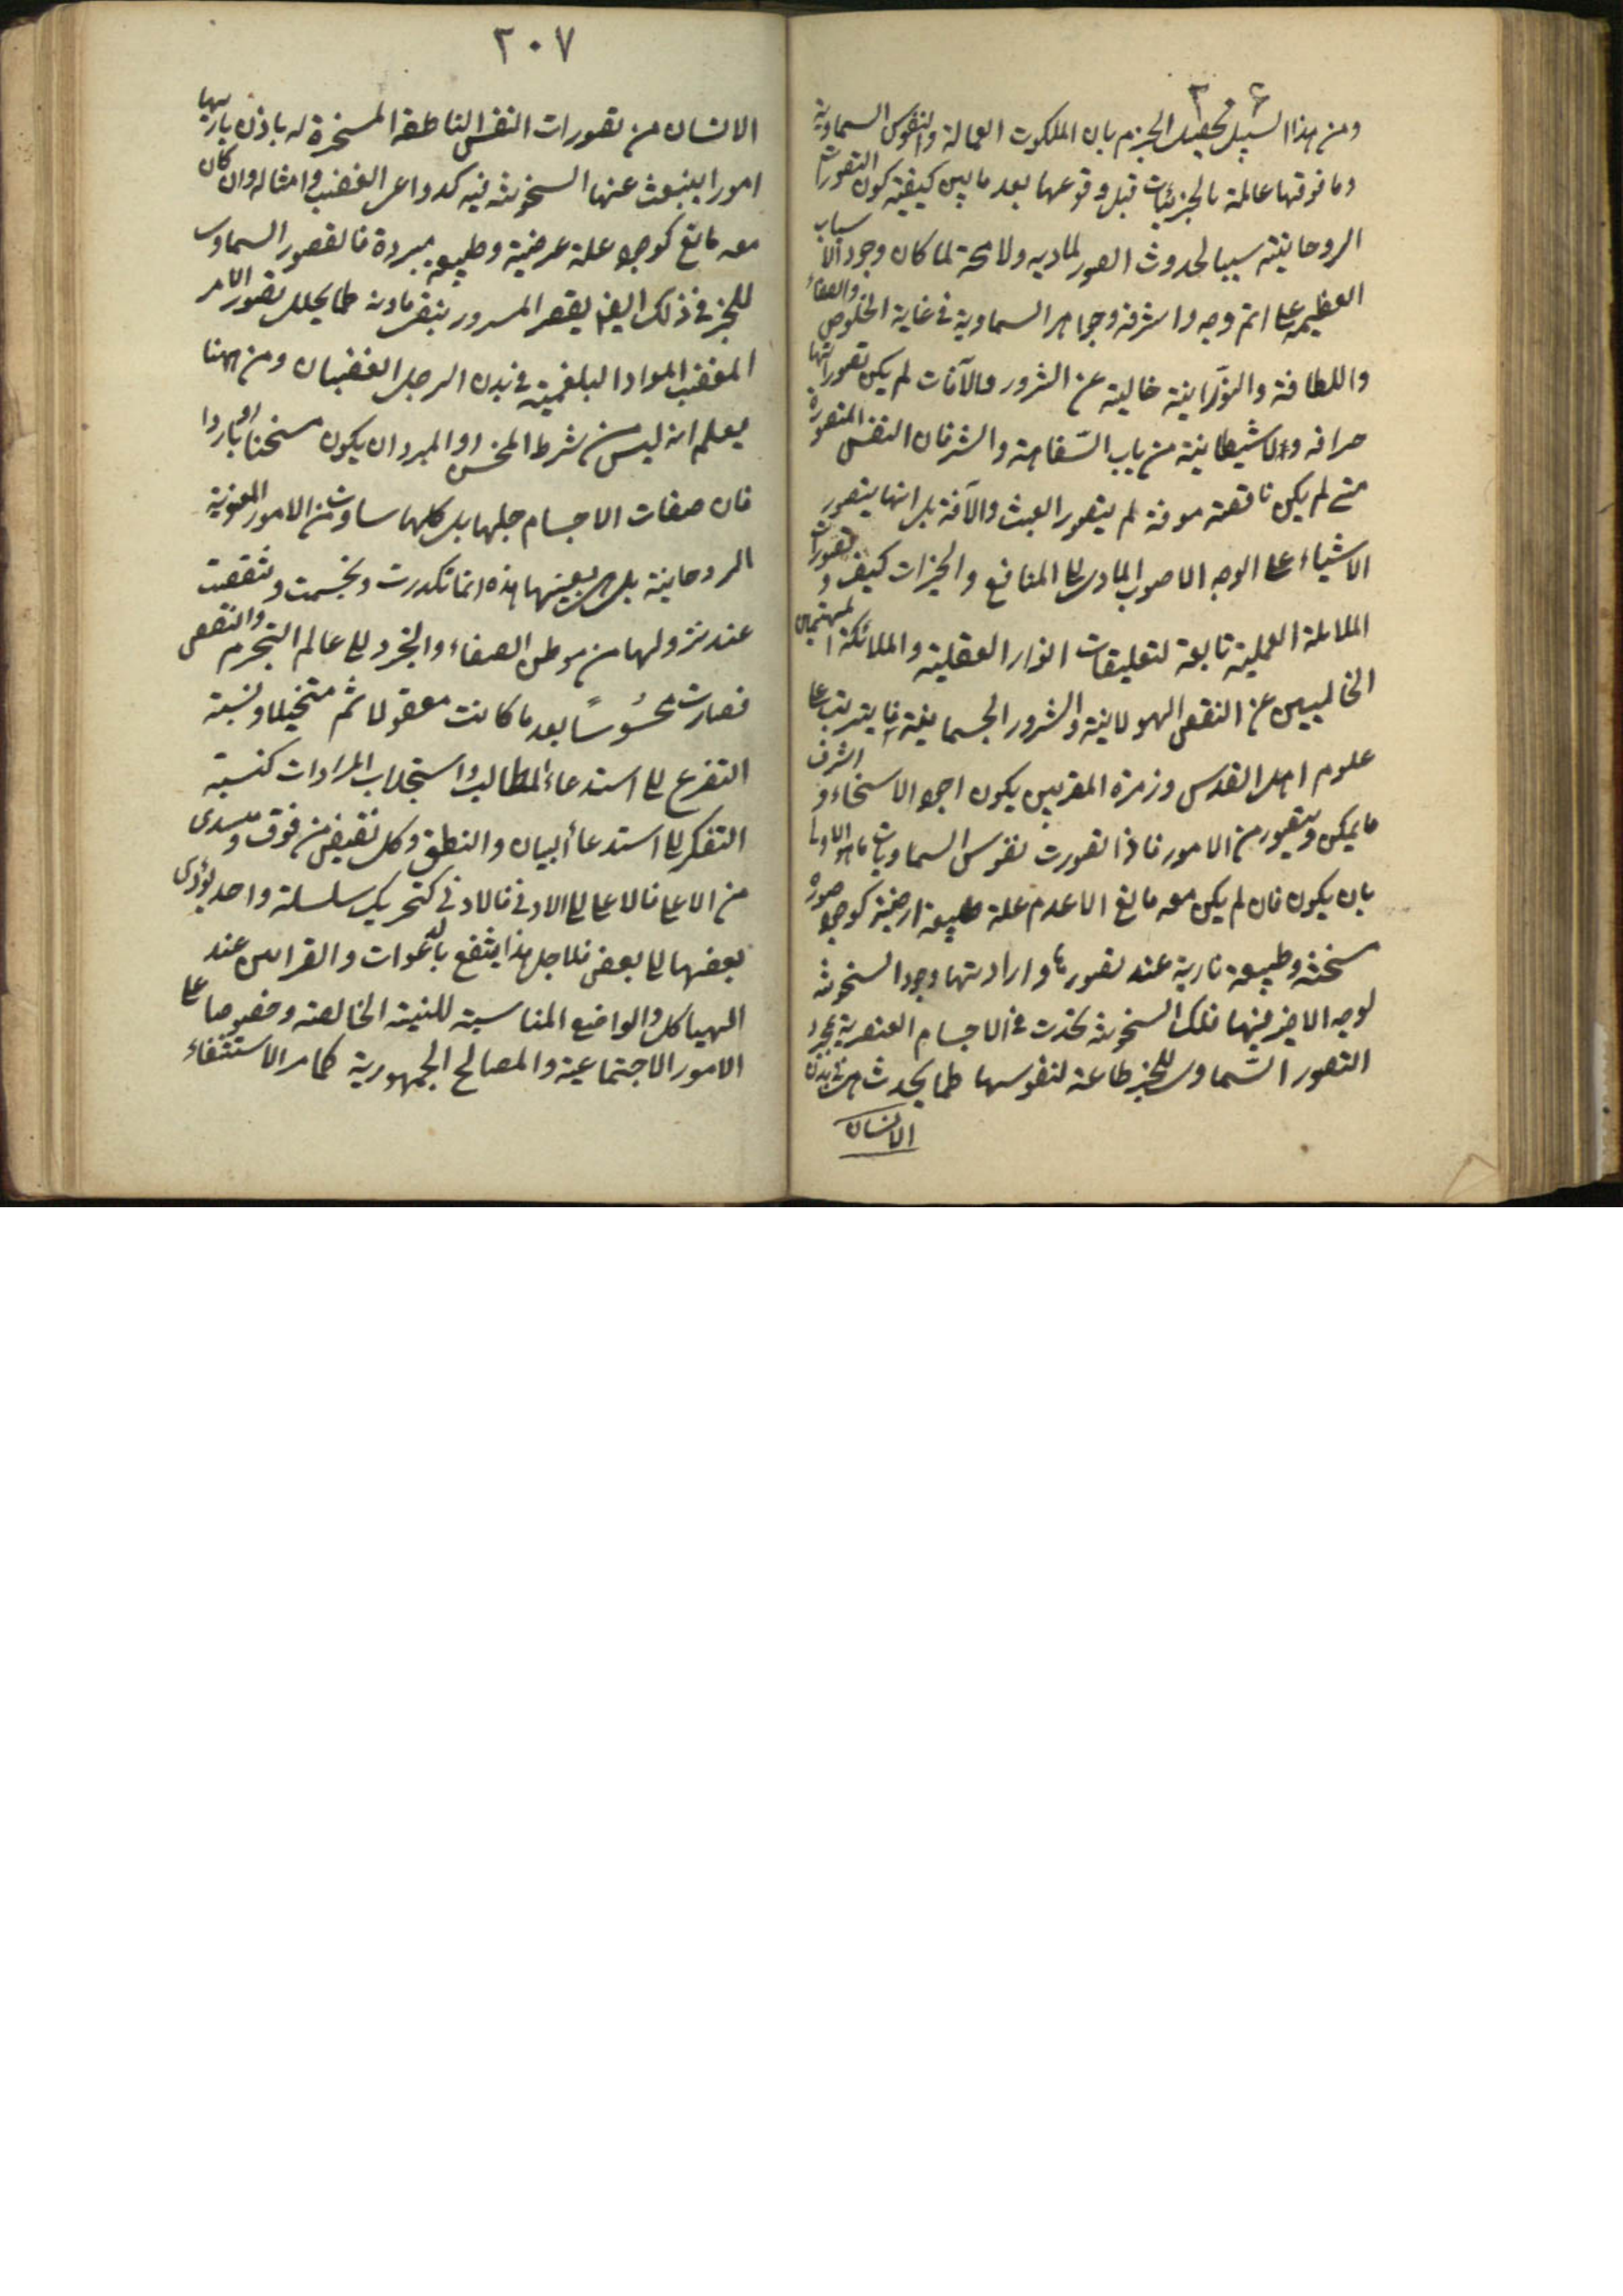 ٢٠٦
ومن هذا السبيل تحصيل الجزم بان الملكوت العمالة والنفوس السماوية
وما فوقها عالمة بالجزئيات قبل وقوعها بعد ما بين كيفية كون التصورات
الروحانية سببا لحدوث الصور المادية ولا محة لما كان وجود الاسباب
العظيمة على اتم وجه واشرفه وجواهر السماوية في غاية الخلوص والصفاء
واللطافة والنورانية خالية عن الشرور والآفات لم يكن تصوراتها
جزافه ولا شيطانية من باب السفاهة والشر فان النفس المتصورة
متى لم يكن ناقصة موفة لم يتصور العبث والآفة بل انها يتصور
الاشياء على الوجه الاصوب المادى الى المنافع والخيرات كيف وتصورات
الملائكة العملية تابعة لتعليقات انوار العقلية والملائكة المهتمين
الخالصين عن النقص الهيولانية والشرور الجسمانية فما يترتب على
علوم اهل القدس وزمرة المقربين يكون اجود الاسخاء واشرف
ما يمكن ويتصور من الامور فاذا تصورت نفوس السماويات ما هو الاولى
بان يكون فان لم يكن معه مانع الا عدم علة طبيعة ارضية كوجود صورة
سخنة وطبيعة نارية عند تصورها وارادتها وجود السخونة
لوجه الاخير فيها فتلك السخونة تحدث في الاجسام العنصرية بمجرد
التصور السماوى للخير طاعة لنفوسها كما يحدث هى في بدن
الانسان
٢٠٧
الانسان من تصورات النفس الناطقة المسخرة له باذن باريها
امورا ينبعث عنها السخونة فيه كدواعى الغضب وامثاله وان كان
معه مانع كوجود علة عرضية وطبيعة مبردة فالتصور السماوى
للخير في ذلك ايضا يقصر المسرور بنقر مادته كما يحلل تصور الامر
المغضب المواد البلغمية في بدن الرجل الغضبان ومن ههنا
يعلم انه ليس من شرط المخس او المبرد ان يكون مسخنا او باردا
فان صفات الاجسام جلها بل كلها ساوت من الامور المعنوية
الروحانية بل هى بعينها هذه انما تكدرت وتجسمت وتنقصت
عند نزولها من موطن الصفاء والتجرد الى عالم التجرم والنقص
فصارت محسوسا بعد ما كانت معقولا ثم متخيلا ونسبة
التضرع الى استدعاء المطالب واستجلاب المرادات كنسبة
التفكر الى استدعاء البيان والنطق وكل نقيض من فوق ومسدى
من الاعلى فالاعلى الى الادنى فالادنى كتحريك سلسلة واحد يؤدى
بعضها الى بعض فلاجل هذا ينتفع بالدعوات والقرابين عند
الهياكل والمواضع المناسبة للنية الخالصة وخصوصا على
الامور الاجتماعية والمصالح الجمهورية كما مر الاستسقاء